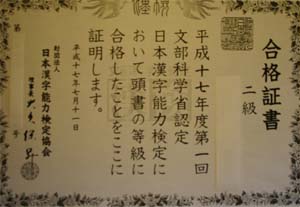 合格証書
二級
平成十七年度第一回
文部科学省認定
日本漢字能力検定に
おいて頭書の等級に
合格したことをここに
証明します。
平成十七年七月十一日
財団法人
日本漢字能力検定協会
理事長
第
号